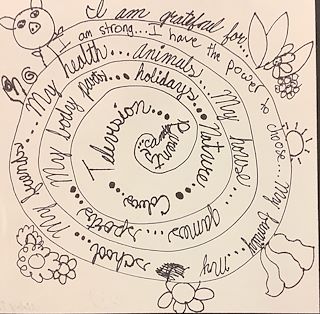 I am grateful for...
I am strong... I have the power to choose... My family... My
My friends... My health... animals... My house...
games... sports... school...
My body parts... holidays... Nature...
Colors... Television...